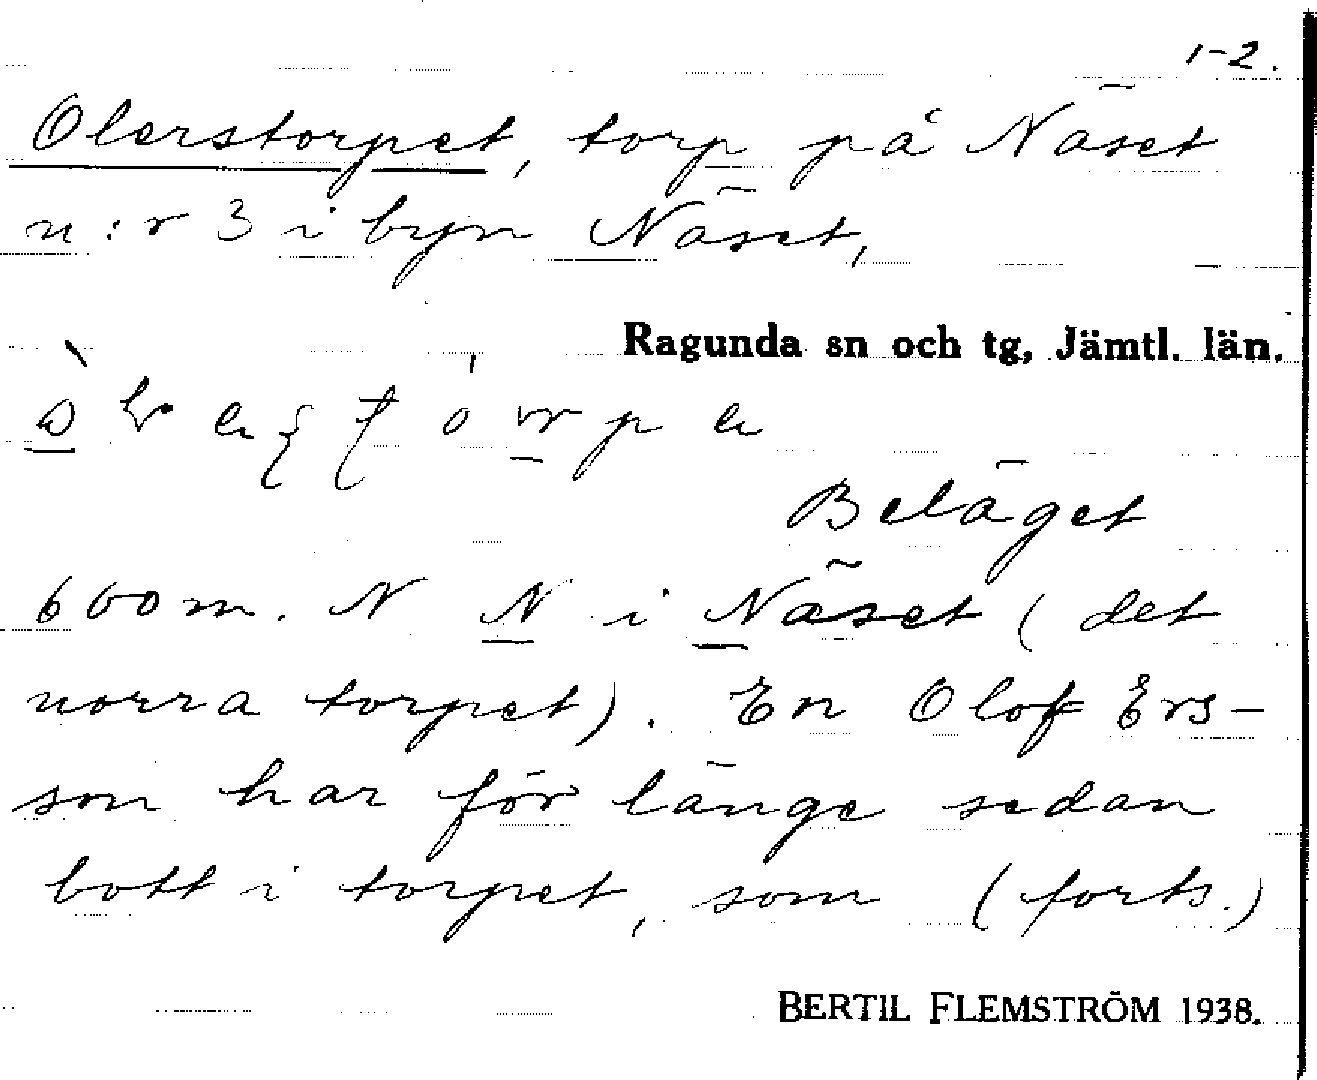 1-2.
Olerstorpet, torp på Näset
n:r 3 i byn Näset,
Ragunda sn och tg, Jämtl. län.
Beläget
600 m. N N i Näset (det
norra torpet). En Olof Ers-
son har för länge sedan
bott i torpet, som (forts.)
BERTIL FLEMSTRÖM 1938.